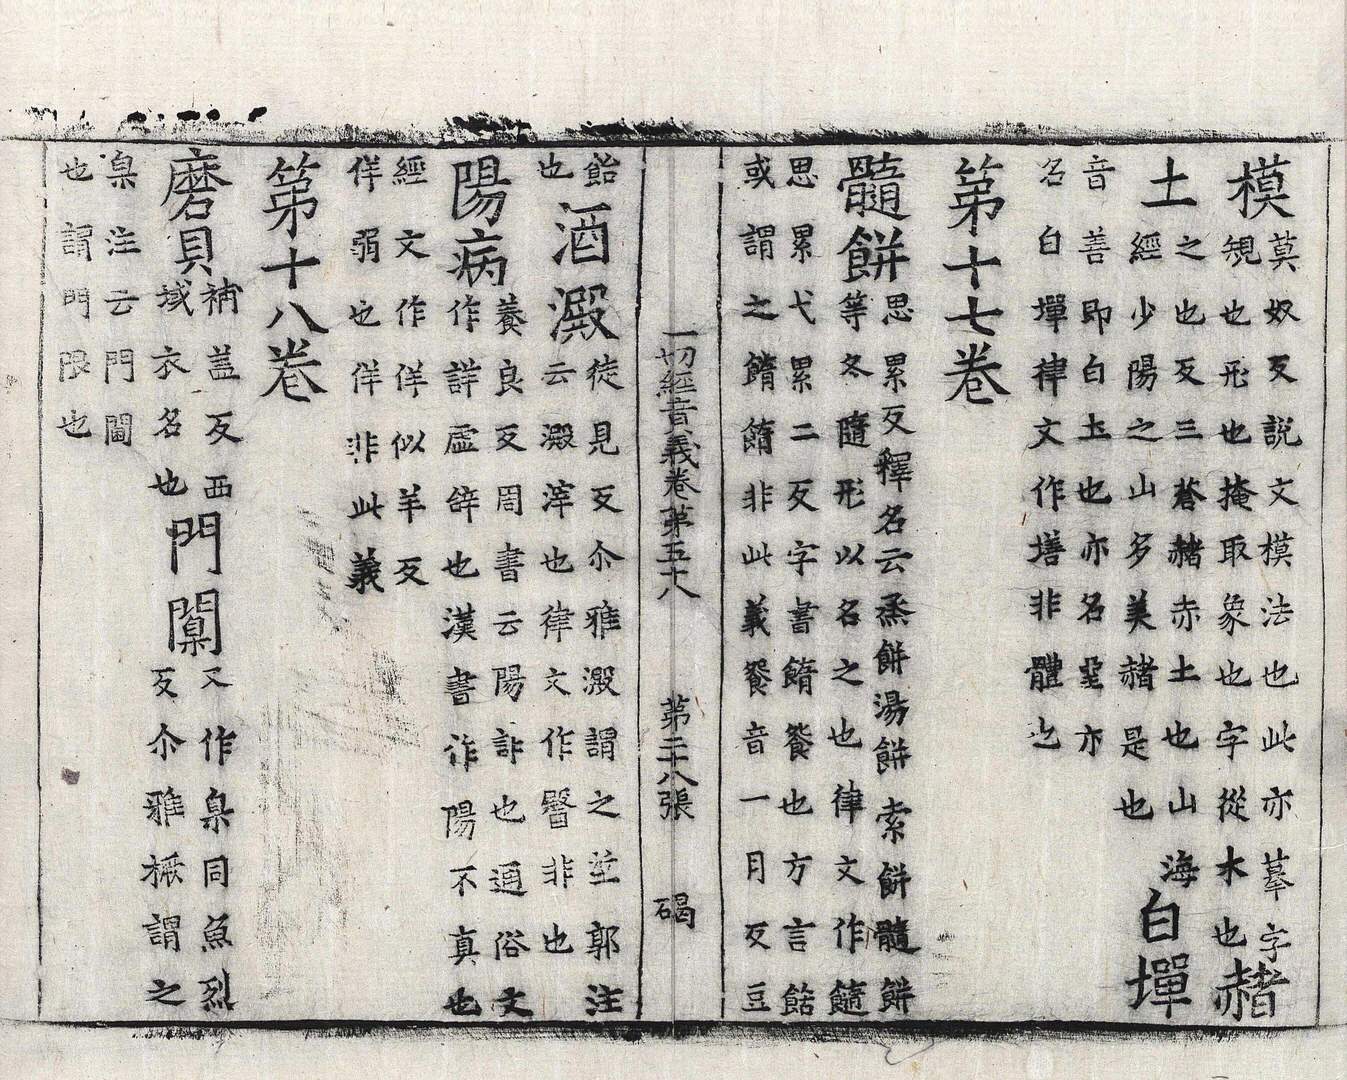 模
莫奴反説文模法也此亦摹字
規也形也掩取象也字從木也
赭
土
之也反三蒼赭赤土也山海
經少陽之山多美赭是也
白墠
音善即白土也亦名堊亦
名白墠律文作墡非體也
第十七卷
髓餅
思累反釋名云烝餅湯餅索餅髓餅
等冬隨形以名之也律文作䭉
思累弋累二反字書䭉餈也方言餻
或謂之䭉䭉非此義餈音一月反豆
一切經音義卷第五十八 第二十八張 碣
飴
也
酒澱
徒見反尒雅澱謂之垽郭注
云澱滓也律文作非也
陽病
養良反周書云陽詐也通俗文
作詳虛辝也漢書詐陽不真也
經文作佯似羊反
佯弱也佯非此義
第十八卷
磨貝
補盖反西
域衣名也
門闑
又作臬同魚烈
反尒雅橛謂之
臬注云門閫
也謂門限也